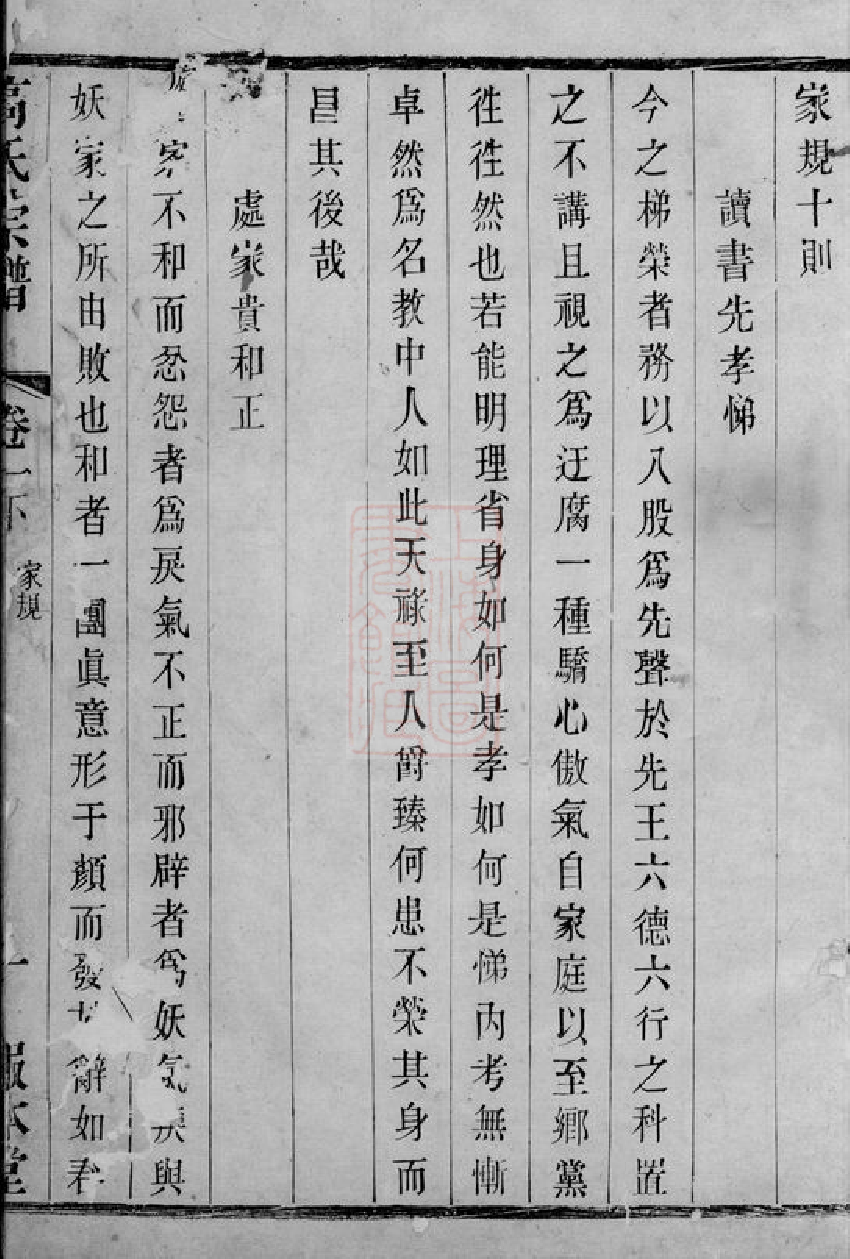 家規十則
讀書先孝悌
今之梯榮者務以八股爲先聲於先王六德六行之科置
之不講且視之爲迂腐一種驕心傲氣自家庭以至鄉黨
徃徃然也若能明理省身如何是孝如何是悌內考無慚
卓然爲名教中人如此天祿至人爵臻何患不榮其身而
昌其後哉
處家貴和正
家不和而忿怨者爲戾氣不正而邪辟者爲妖氣戾與
妖家之所由敗也和者一團眞意形于顏而發辭如春
高氏宗譜
卷一下
家規
一
報本堂
上海圖書館藏